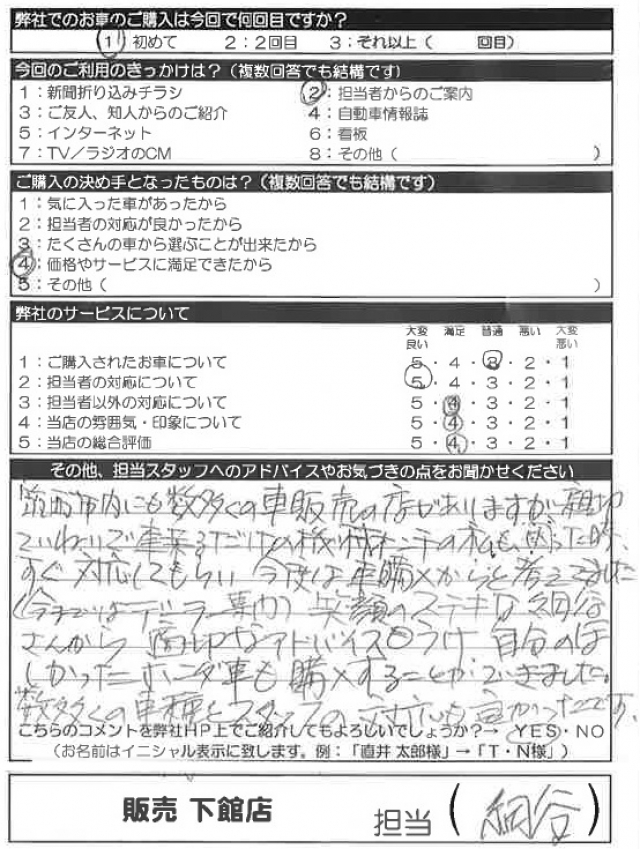 弊社でのお車のご購入は今回で何回目ですか？
1 初めて 2：2回目 3：それ以上（ 回目）
今回のご利用のきっかけは？（複数回答でも結構です）
1：新聞折り込みチラシ 2：担当者からのご案内
3：ご友人、知人からのご紹介 4：自動車情報誌
5：インターネット 6：看板
7：TV／ラジオのCM 8：その他（ ）
ご購入の決め手となったものは？（複数回答でも結構です）
1：気に入った車があったから
2：担当者の対応が良かったから
3：たくさんの車から選ぶことが出来たから
4：価格やサービスに満足できたから
5：その他（ ）
弊社のサービスについて
大変良い 満足 普通 悪い 大変悪い
1：ご購入されたお車について 5・4・3・2・1
2：担当者の対応について 5・4・3・2・1
3：担当者以外の対応について 5・4・3・2・1
4：当店の雰囲気・印象について 5・4・3・2・1
5：当店の総合評価 5・4・3・2・1
その他、担当スタッフへのアドバイスやお気づきの点をお聞かせください
市内にも数多くの車販売の店がありますが、親切
ていねいで車乗るだけの機械オンチの私も、困った時、
すぐ対応してもらい 今度は車購入からと考えてました
（今まではディーラー専門）笑顔のステキな 細谷
さんから 適切なアドバイスをうけ 自分のほ
しかったホンダ車も購入することができました。
数多くの車種とスタッフの対応も良かったです。
こちらのコメントを弊社HP上でご紹介してもよろしいでしょうか？→ YES・NO
（お名前はイニシャル表示に致します。例：「直井 太郎様」→「T・N様」）
販売 下館店 担当（細谷）